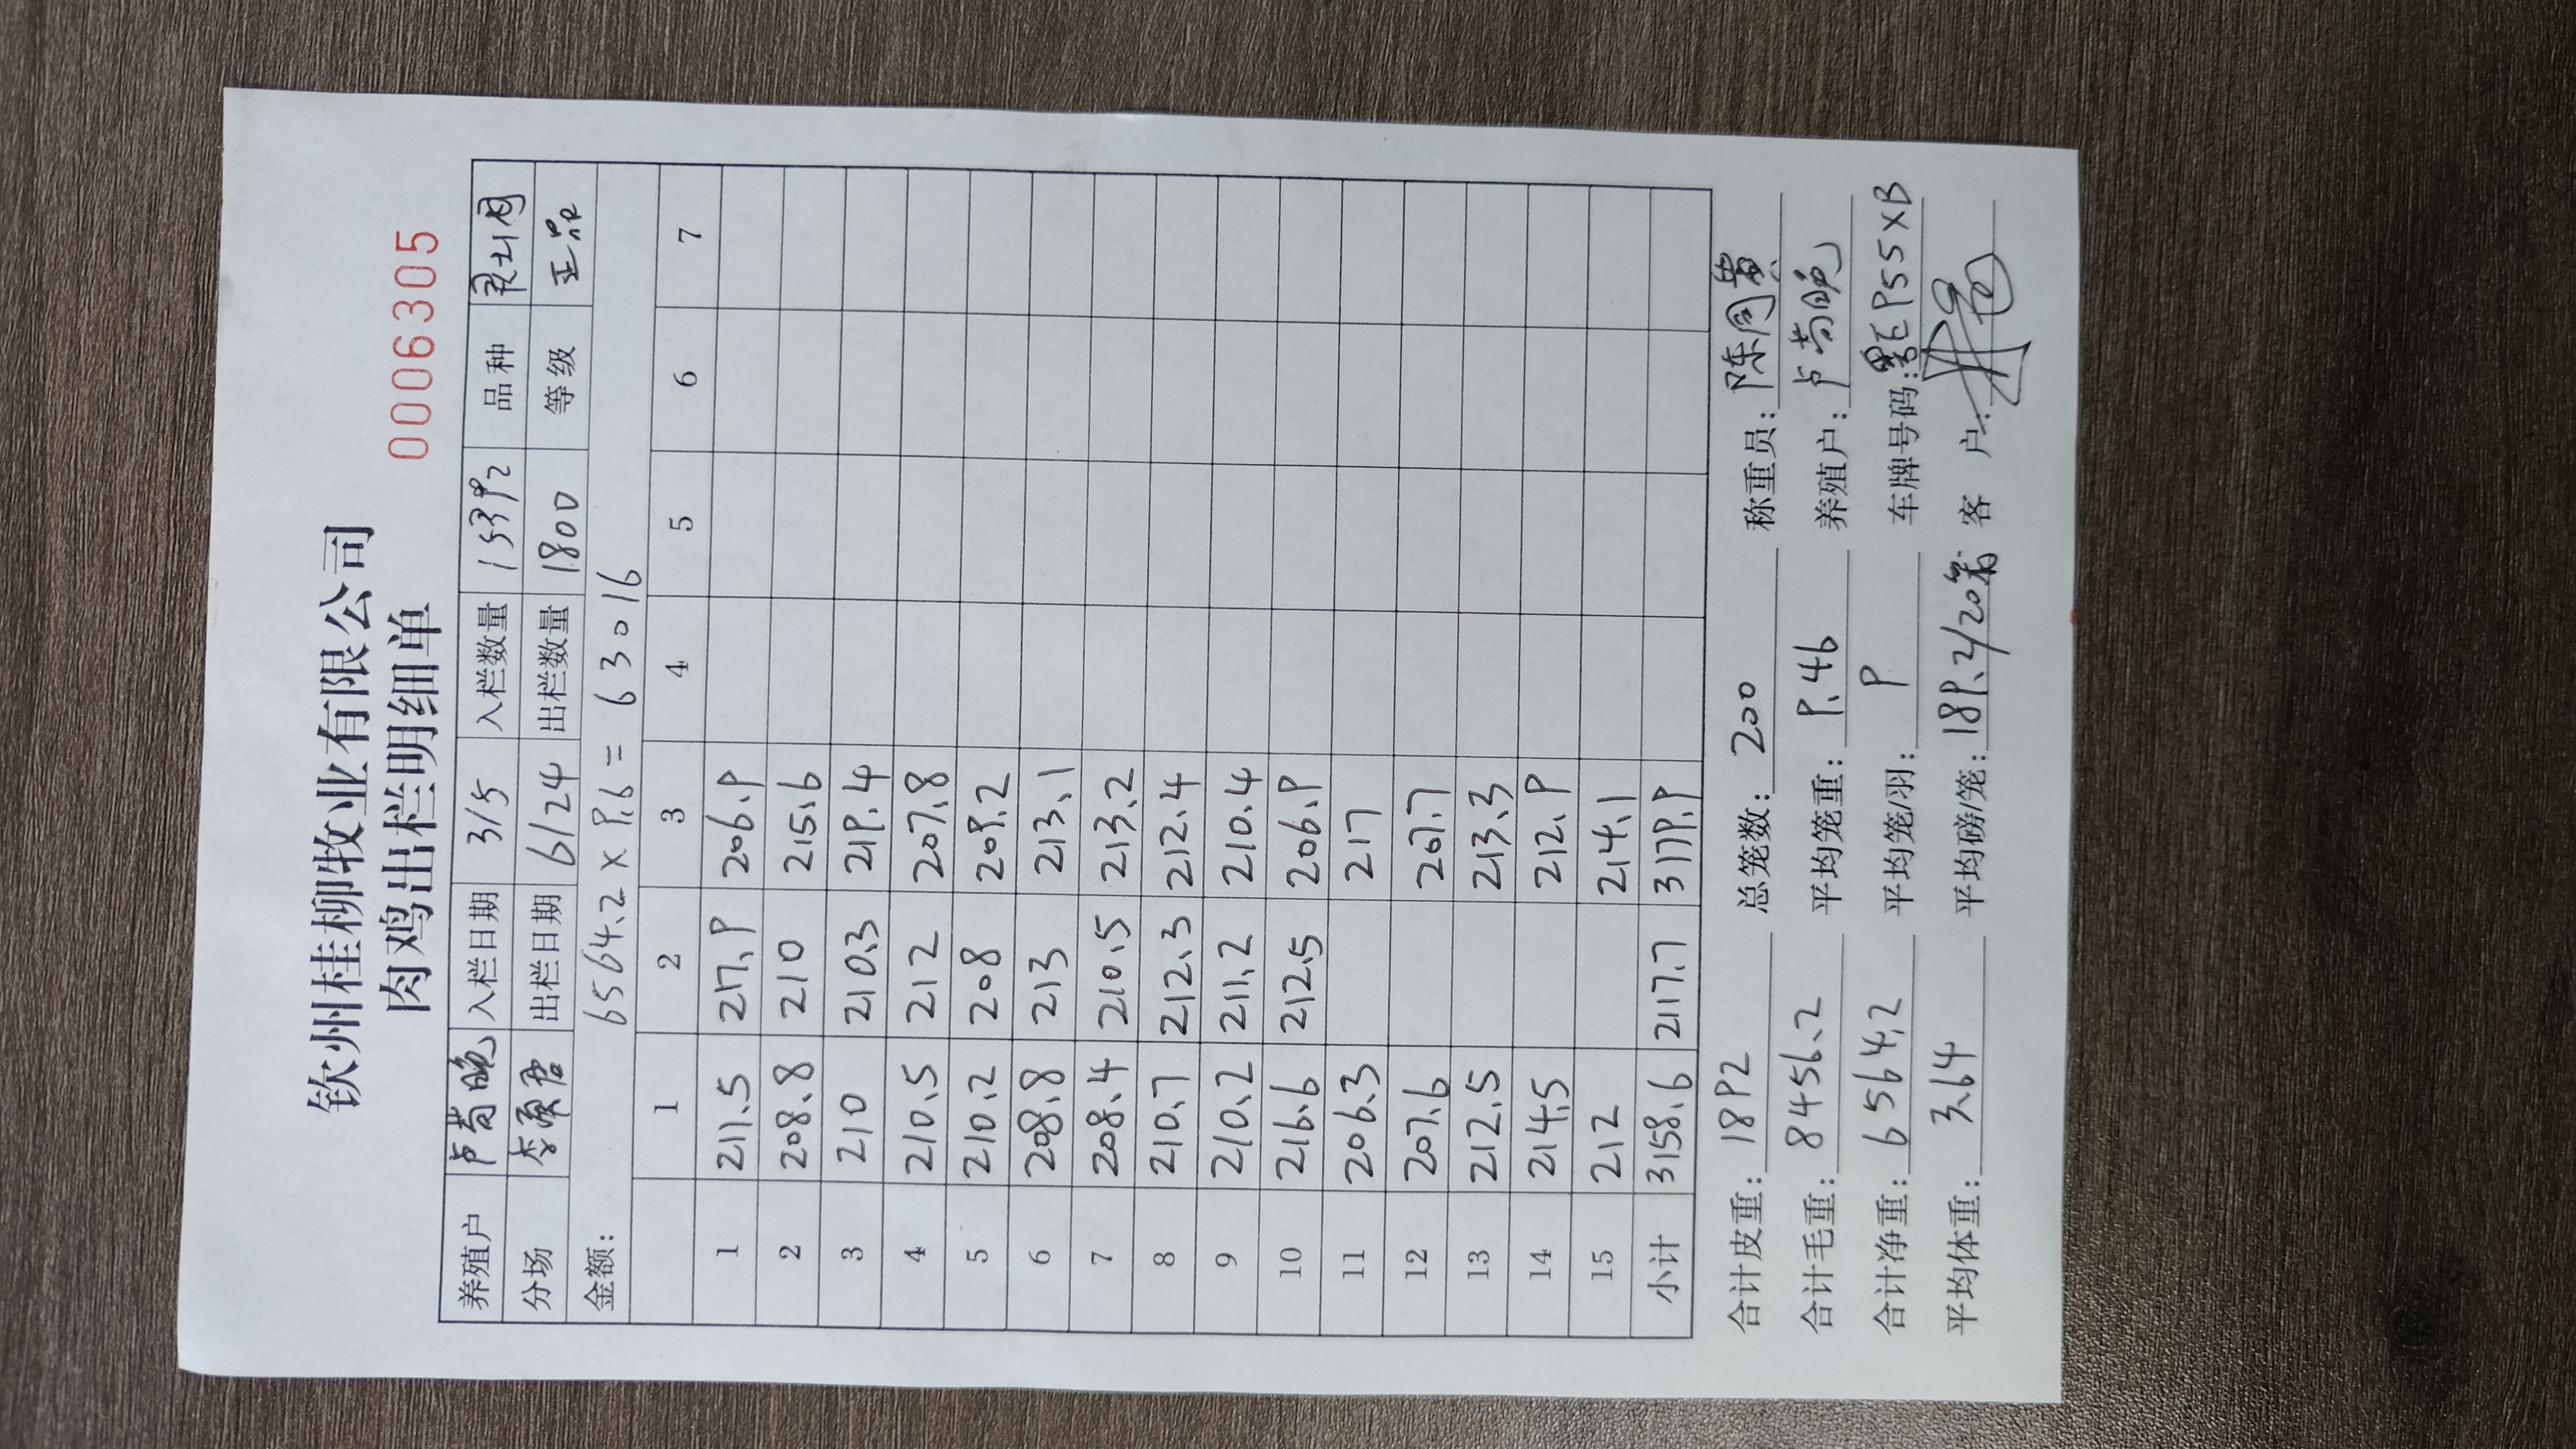 钦州桂柳牧业有限公司
肉鸡出栏明细单
0006305
养殖户 入栏日期 3/5 入栏数量 15392 品种
分场 出栏日期 6/24 出栏数量 1800 等级 正品
金额: 6564.2×9.6=63016
1 2 3 4 5 6 7
1 211.5 217.9 206.9
2 208.8 210 215.6
3 210 210.3 219.4
4 210.5 212 207.8
5 210.2 208 209.2
6 208.8 213 213.1
7 208.4 210.5 213.2
8 210.7 212.3 212.4
9 210.2 211.2 210.4
10 216.6 212.5 206.9
11 206.3 217
12 207.6 207.7
13 212.5 213.3
14 214.5 212.9
15 212 214.1
小计 3158.6 2117.7 3179.9
合计皮重: 1892 总笼数: 200 称重员:
合计毛重: 8456.2 平均笼重: 9.46 养殖户:
合计净重: 6564.2 平均笼/羽: 9 车牌号码:
平均体重: 3.64 平均磅/笼: 189.2/20 客 户: